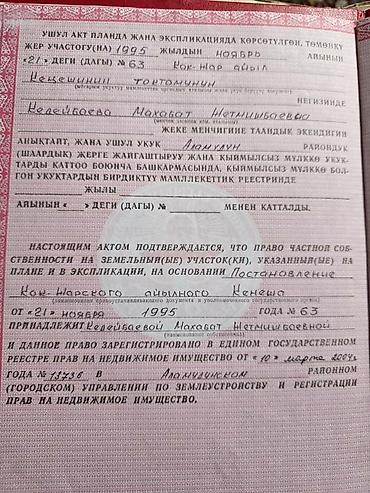 УШУЛ АКТ ПЛАНДА ЖАНА ЭКСПЛИКАЦИЯДА КӨРСӨТҮЛГӨН, ТӨМӨНКҮ
ЖЕР УЧАСТОГУ(НА) 1995 ЖЫЛДЫН НОЯБРЬ АЙЫНЫН
«21» ДЕГИ (ДАГЫ) № 63 Кок-Жар айыл
Кеңешинин токтомунун
НЕГИЗИНДЕ
Келейбаева Махабат Жетмишбаевна
ЖЕКЕ МЕНЧИГИНЕ ТААНДЫК ЭКЕНДИГИН
АНЫКТАЙТ, ЖАНА УШУЛ УКУК Аламүдүн РАЙОНДУК
(ШААРДЫК) ЖЕРГЕ ЖАЙГАШТЫРУУ ЖАНА КЫЙМЫЛСЫЗ МҮЛККӨ УКУК-
ТАРДЫ КАТТОО БОЮНЧА БАШКАРМАСЫНДА, КЫЙМЫЛСЫЗ МҮЛККӨ БОЛ-
ГОН УКУКТАРДЫН БИРДИКТҮҮ МАМЛЕКЕТТИК РЕЕСТРИНДЕ
ЖЫЛЫ
АЙЫНЫН « » ДЕГИ (ДАГЫ) № МЕНЕН КАТТАЛДЫ.
НАСТОЯЩИМ АКТОМ ПОДТВЕРЖДАЕТСЯ, ЧТО ПРАВО ЧАСТНОЙ СОБ-
СТВЕННОСТИ НА ЗЕМЕЛЬНЫЙ(ЫЕ) УЧАСТОК(КИ), УКАЗАННЫЙ(ЫЕ) НА
ПЛАНЕ И В ЭКСПЛИКАЦИИ, НА ОСНОВАНИИ Постановление
Кок-Жарского айылного Кенеша
(наименование правоустанавливающего документа и уполномоченного государственного органа)
ОТ «21» ноября 1995 ГОДА № 63
ПРИНАДЛЕЖИТ Келейбаевой Махабат Жетмишбаевной
(наименование собственника)
И ДАННОЕ ПРАВО ЗАРЕГИСТРИРОВАНО В ЕДИНОМ ГОСУДАРСТВЕННОМ
РЕЕСТРЕ ПРАВ НА НЕДВИЖИМОЕ ИМУЩЕСТВО ОТ «10» марта 2004
ГОДА № 13736 В Аламудунском РАЙОННОМ
(ГОРОДСКОМ) УПРАВЛЕНИИ ПО ЗЕМЛЕУСТРОЙСТВУ И РЕГИСТРАЦИИ
ПРАВ НА НЕДВИЖИМОЕ ИМУЩЕСТВО.